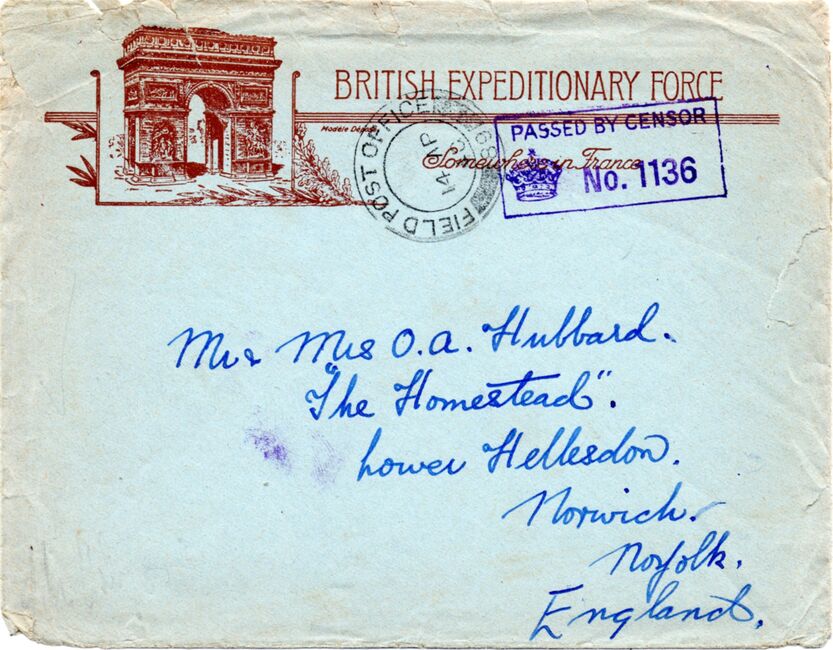 BRITISH EXPEDITIONARY FORCE
Modèle Déposé
Somewhere in France
FIELD POST OFFICE
14 AP
PASSED BY CENSOR
No. 1136
Mr & Mrs O.A. Hubbard.
"The Homestead".
Lower Hellesdon.
Norwich.
Norfolk.
England.